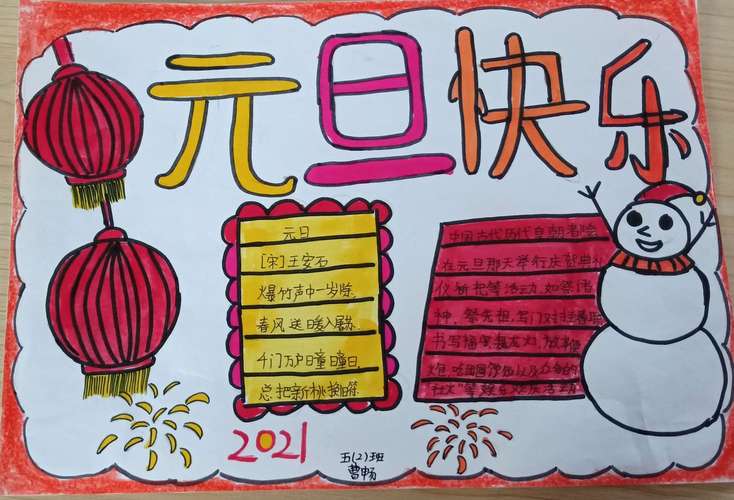 元旦快乐
元日
[宋]王安石
爆竹声中一岁除,
春风送日暖入屠苏.
千门万户曈曈日,
总把新桃换旧符.
中国古代历代皇朝都会
在元旦那天举行庆贺典
仪祈祀等活动,如祭诸
神,祭先祖,写门对挂春联
书写福字、舞龙灯,
社火等娱乐欢庆活动
2021
五(2)班
曹畅